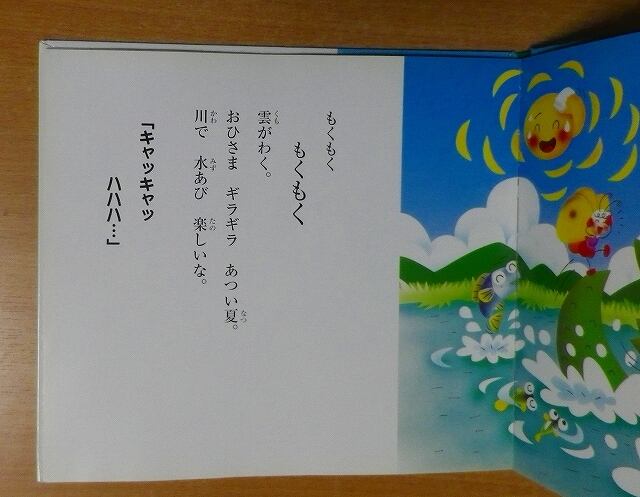 もくもく
もくもく
雲がわく。
おひさま　ギラギラ　あつい夏。
川で　水あび　楽しいな。
「キャッキャッ
ハハハ…」